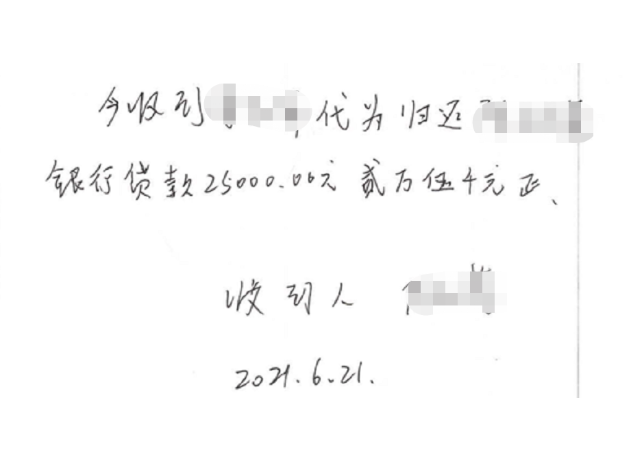 今收到
,代为归还
银行贷款25000.00元 贰万伍千元正、
收到人
2021.6.21.